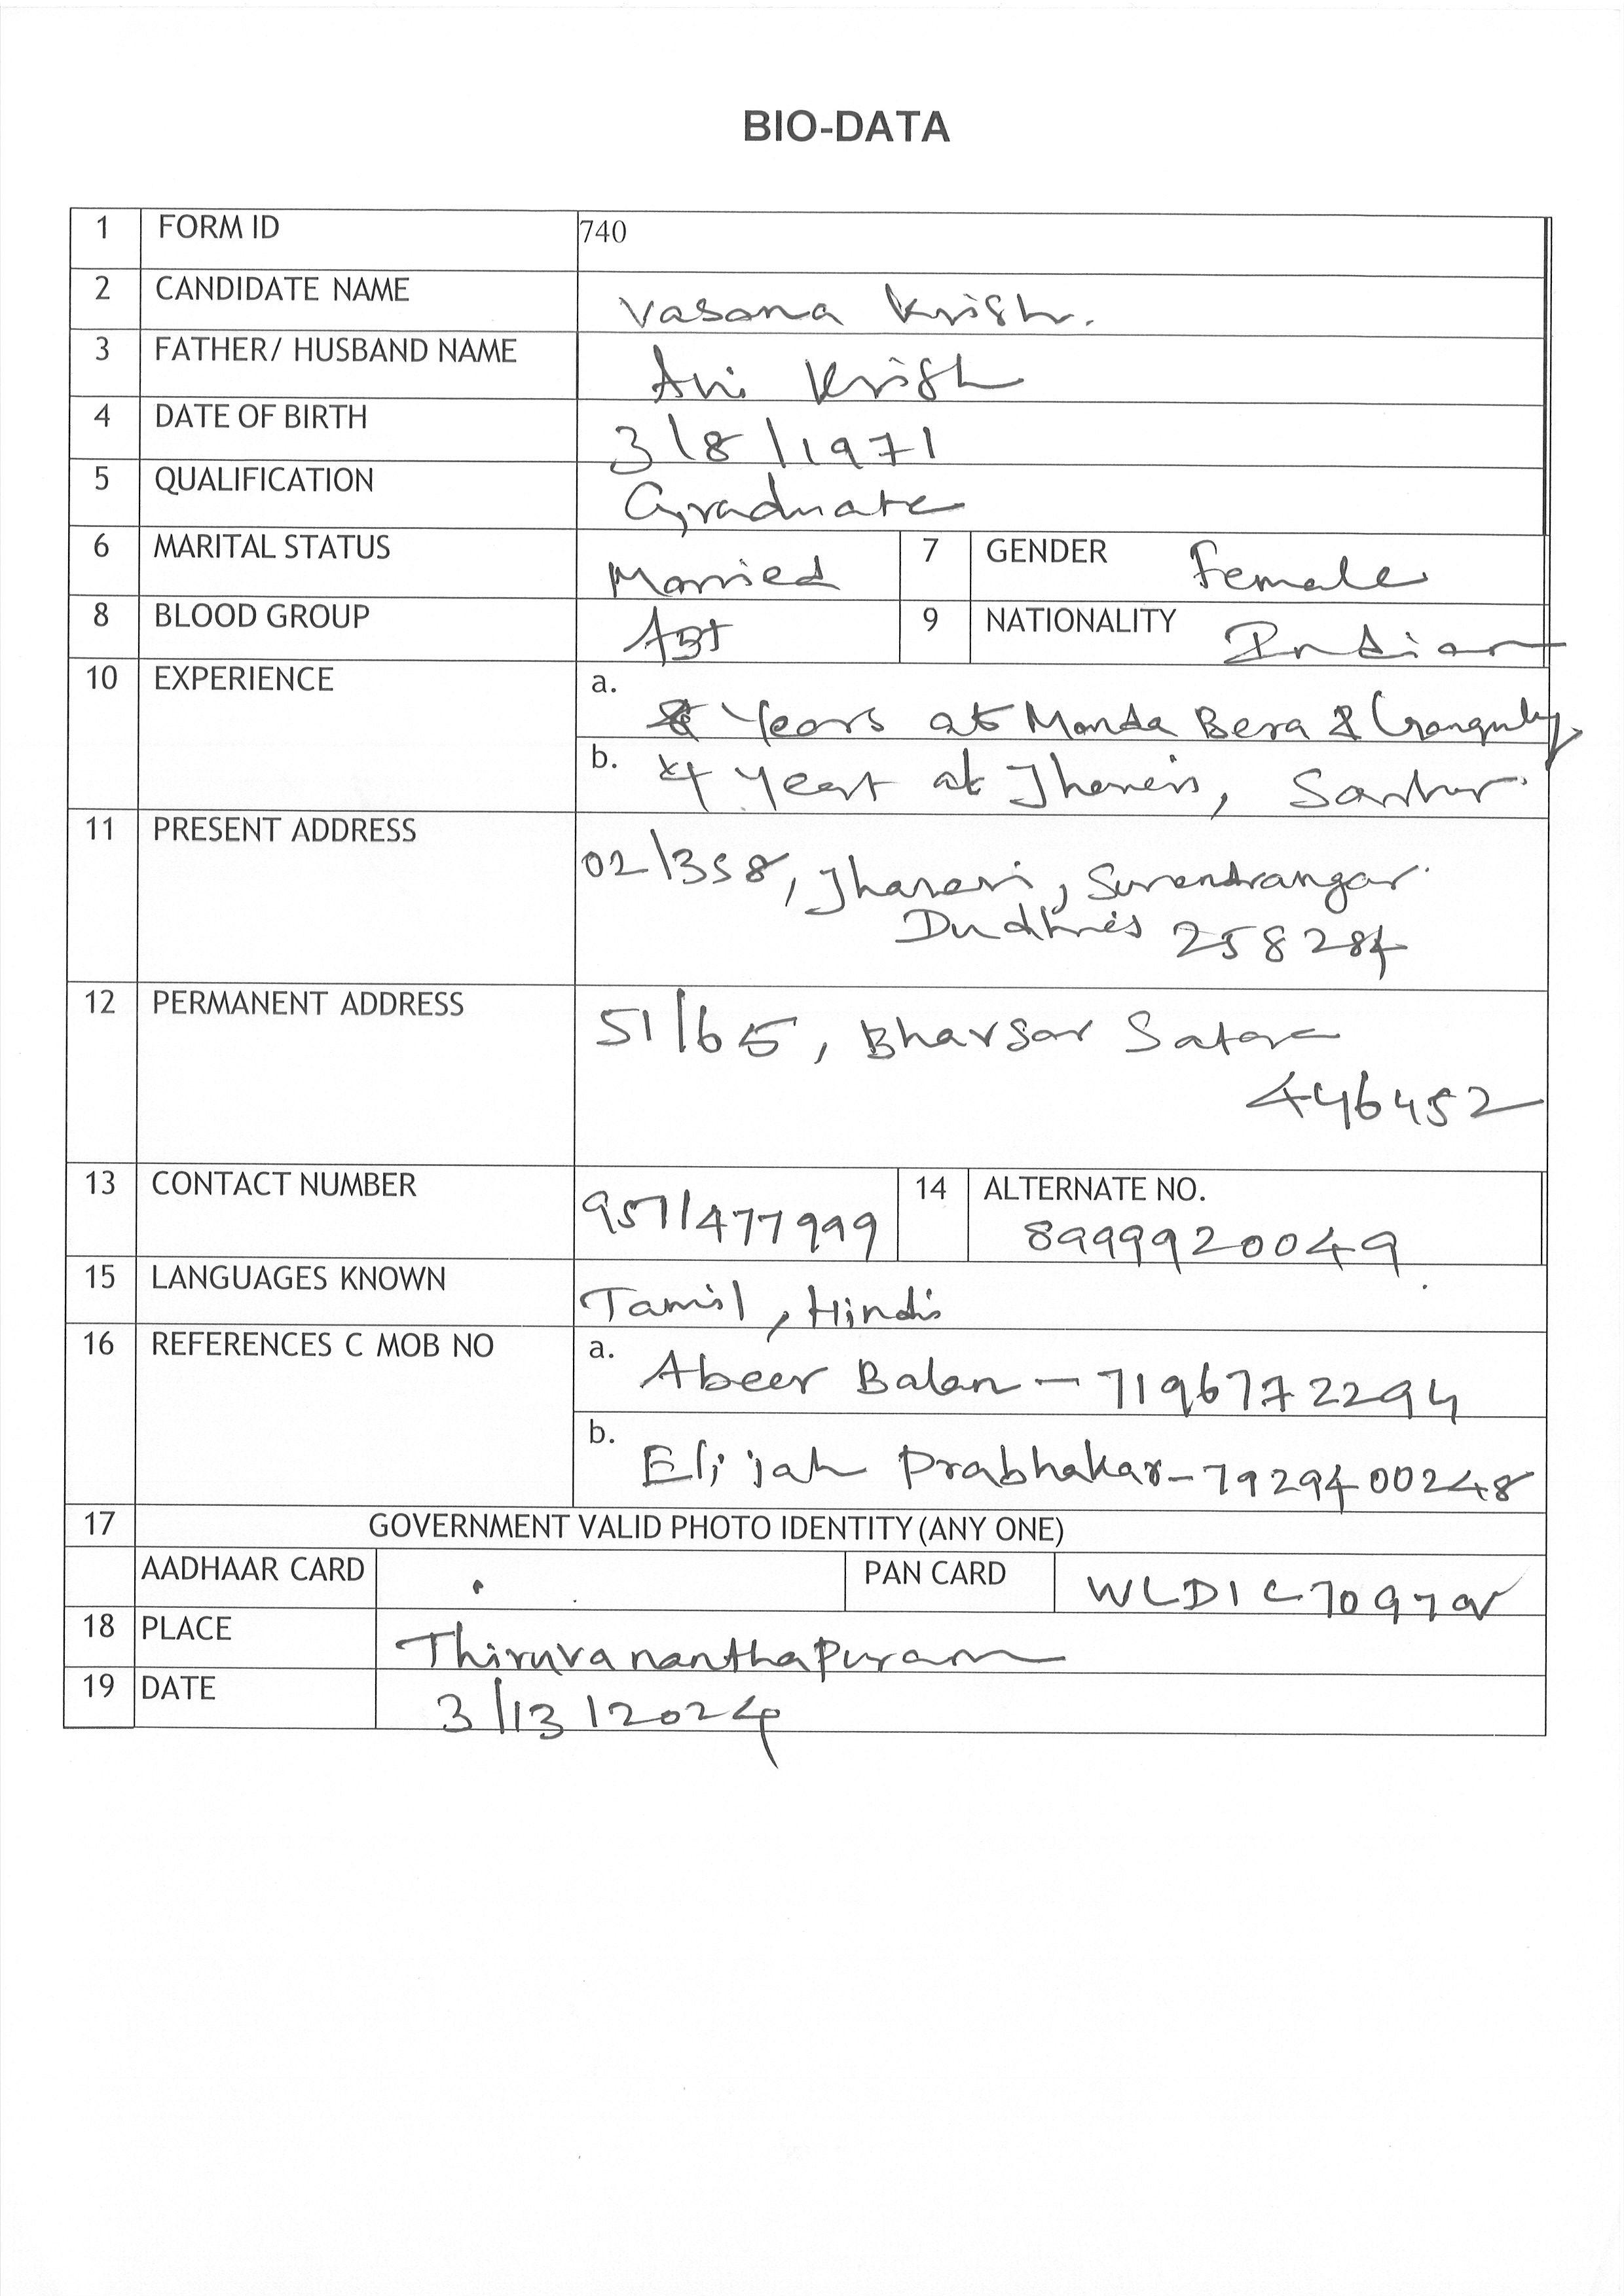 BIO-DATA
1 FORM ID 740
2 CANDIDATE NAME Vasana Krish.
3 FATHER/ HUSBAND NAME Avi Krish
4 DATE OF BIRTH 3/8/1971
5 QUALIFICATION Graduate
6 MARITAL STATUS Married 7 GENDER Female
8 BLOOD GROUP AB+ 9 NATIONALITY Indian
10 EXPERIENCE a. Years at Manda Bera & Ganguly
b. 4 Year at
11 PRESENT ADDRESS 02/358, Jhaneri, Surendrangar
258284
12 PERMANENT ADDRESS 51/65, Bhavsar Satara
446452
13 CONTACT NUMBER 9571477999 14 ALTERNATE NO. 8999920049
15 LANGUAGES KNOWN Tamil, Hindi
16 REFERENCES C MOB NO a. Abeer Balan - 7196772294
b. Elijah Prabhakar - 7929400248
17 GOVERNMENT VALID PHOTO IDENTITY (ANY ONE)
AADHAAR CARD PAN CARD
18 PLACE Thiruvananthapuram
19 DATE 3/13/2024